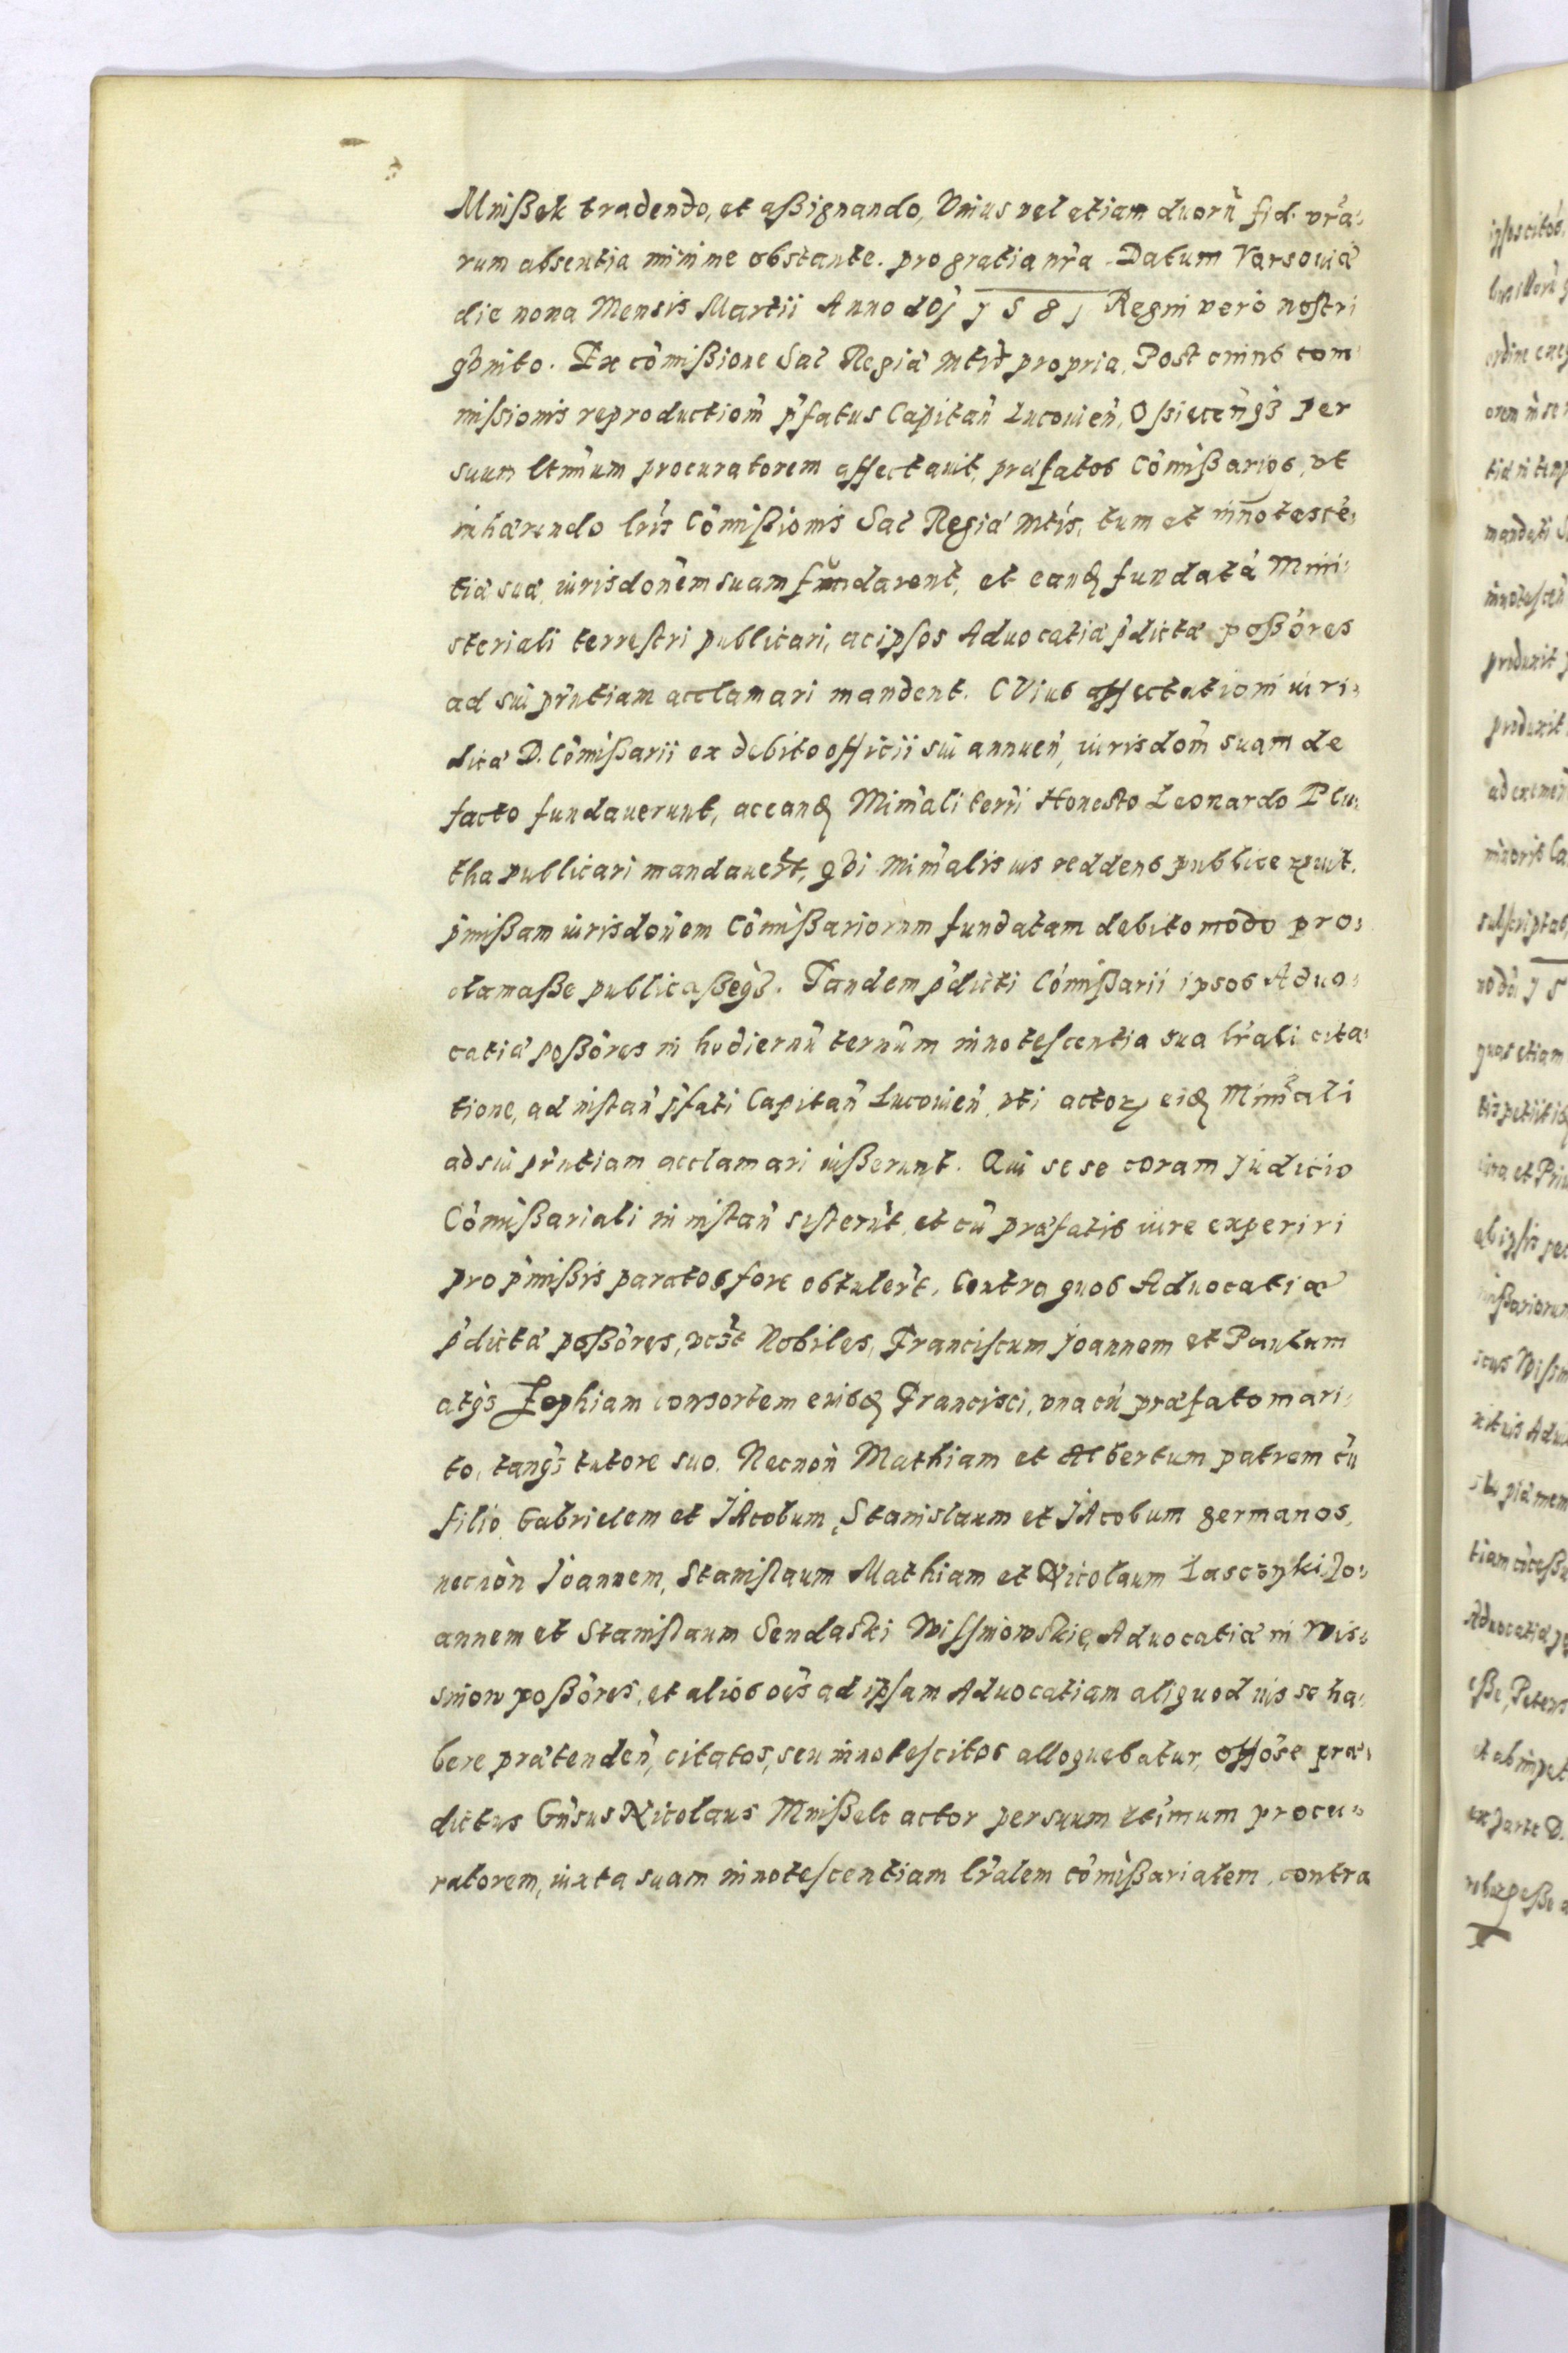 Mnißek tradendo, et aßignando, Vnius vel etiam duorũ fid. vr̃a:
rum absentia minime obstante. pro gratia nr̃a. Datum Varsouiæ
die nona Mensis Martii Anno dnj 1581 Regni vero nostri
qvinto. Ex cõmißione Sac Regiæ Mtis propria. Post cuius com
mißionis reproductiõm p̃fatus Capitañ Lucouień, Oßiecenq3 per
suum ltimum procuratorem affectauit, præfatos Cõmißarios, vt
inhærendo lrĩs Cõmißionis Sac Regiæ Mtis, tum et innotescẽ:
tiæ suæ, iurisdoñem suam fundarent, et eandẽ fundatã Mini:
steriali terrestri publicari, ac ipsos Aduocatiæ p̃dictæ poßòres
ad sui pr̃ntiam acclamari mandent. CVius affectationi iuri:
dicæ D. Cõmißarii ex debito officii sui annueñ, iurisdom̃ suam de
facto fundauerunt, ac eandẽ Minĩali terrĩ Honesto Leonardo Plu:
tha publicari mandauer̃t, qdi Minĩalis ius reddens publice rcuit.
p̃mißam iurisdoñem Cõmißariorum fundatam debito modo pro:
clamaße publicaßeq3. Tandem p̃dicti Cõmißarii ipsos Aduo:
catiæ poßòres in hodiernũ ternũm innotescentia sua lr̃ali cita:
tione, ad instañ p̃fati Capitañ Lucouień, vti actor, eidẽ Minĩali
ad sui pr̃ntiam acclamari iußerunt. Qui se se coram Judicio
Cõmißariali in instañ sister̃ut, et cũ præfatis iure experiri
pro p̃mißis paratos fore obtuler̃t, Contra quos Aduocatiæ
p̃dictæ poßòres, vcz̃t Nobiles, Franciscum Joannem et Paulum
atq3 Zophiam consortem eiusdẽ Francisci, vna cũ præfato mari:
to, tanq3 tutore suo. Necnòn Mathiam et Albertum patrem cũ
filio, Gabrielem et JAcobum, Stanislaum et JAcobum germanos,
necnòn Joannem, Stanislaum Mathiam et Nicolaum Lasczyki, Jo:
annem et Stanislaum Sendaski Wissniowskie, Aduocatiæ in Wis:
sniow poßòres, et alios oẽs ad ipsam Aduocatiam aliquod ius se ha:
bere prætendeñ, citatos, seu innotescitos alloquebatur, offõse præ:
dictus Gñsus Nicolaus Mnißek actor per suum ltimum procu:
ratorem, iuxta suam innotescentiam lr̃alem cõmißarialem, contra